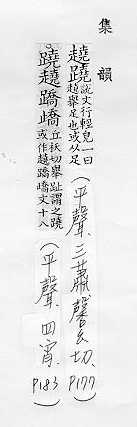 集韻
趬蹺說文行輕皃一曰趬舉足也或从足(平聲三蕭馨幺切、P177)
蹺趫蹻𨄅丘祆切舉趾謂之蹺或作趫蹻𨄅文十八(平聲四宵P183)